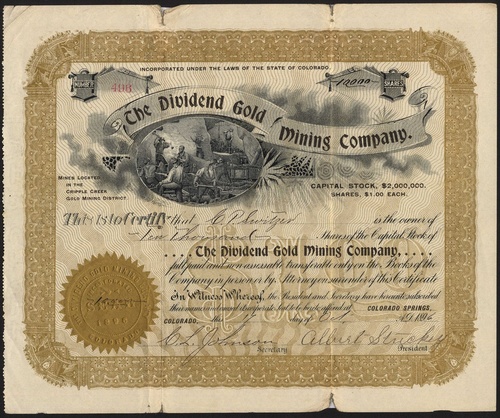 INCORPORATED UNDER THE LAWS OF THE STATE OF COLORADO.
NUMBER
406
10000
SHARES
The Dividend Gold Mining Company.
MINES LOCATED
IN THE
CRIPPLE CREEK
GOLD MINING DISTRICT.
CAPITAL STOCK, $2,000,000.
SHARES, $1.00 EACH.
This is to Certify that C. P. Switzer is the owner of
Ten Thousand Shares of the Capital Stock of
.... The Dividend Gold Mining Company, ....
full paid and non assessable transferable only on the Books of the
Company in person or by Attorney on surrender of this Certificate
In Witness Whereof, the President and Secretary have hereunto subscribed
their names and caused the corporate Seal to be hereto affixed at COLORADO SPRINGS,
COLORADO. this day of A.D. 1896
Johnson
Secretary
Albert
President